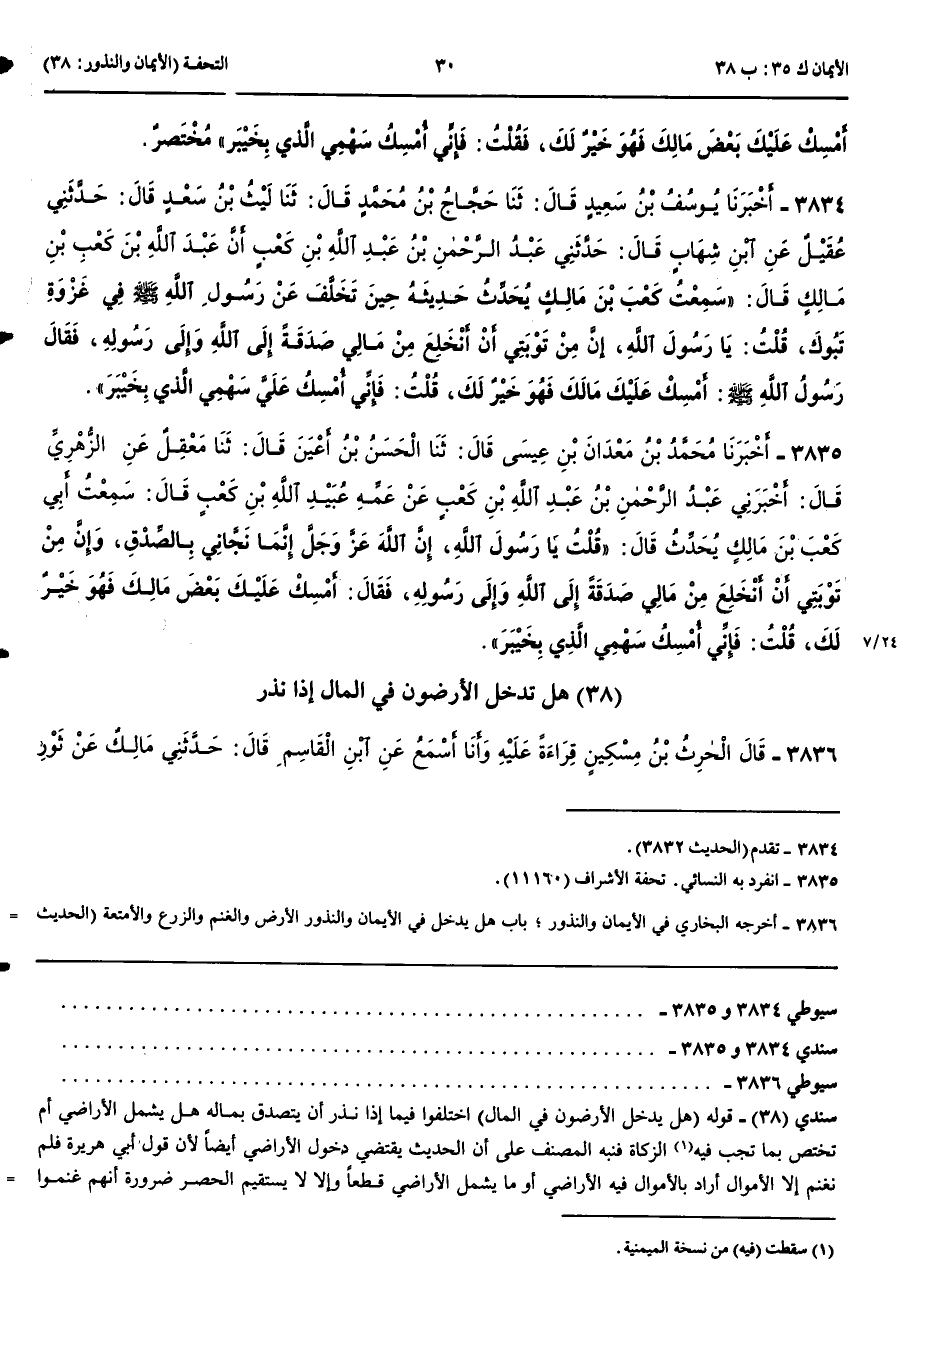 الأيمان ك ٣٥: ب ٣٨ ٣٠ التحفة (الأيمان والنذور: ٣٨)
أَمْسِكْ عَلَيْكَ بَعْضَ مَالِكَ فَهُوَ خَيْرٌ لَكَ، فَقُلْتُ: فَإِنِّي أُمْسِكُ سَهْمِي الَّذِي بِخَيْبَرَ» مُخْتَصَرٌ.
٣٨٣٤ - أَخْبَرَنَا يُوسُفُ بْنُ سَعِيدٍ قَالَ: ثَنَا حَجَّاجُ بْنُ مُحَمَّدٍ قَالَ: ثَنَا لَيْثُ بْنُ سَعْدٍ قَالَ: حَدَّثَنِي
عُقَيْلٌ عَنِ ٱبْنِ شِهَابٍ قَالَ: حَدَّثَنِي عَبْدُ الرَّحْمٰنِ بْنُ عَبْدِ اللَّهِ بْنِ كَعْبٍ أَنَّ عَبْدَ ٱللَّهِ بْنَ كَعْبِ بْنِ
مَالِكٍ قَالَ: «سَمِعْتُ كَعْبَ بْنَ مَالِكٍ يُحَدِّثُ حَدِيثَهُ حِينَ تَخَلَّفَ عَنْ رَسُولِ ٱللَّهِ ﷺ فِي غَزْوَةِ
تَبُوكَ، قُلْتُ: يَا رَسُولَ ٱللَّهِ، إِنَّ مِنْ تَوْبَتِي أَنْ أَنْخَلِعَ مِنْ مَالِي صَدَقَةً إِلَى ٱللَّهِ وَإِلَى رَسُولِهِ، فَقَالَ
رَسُولُ ٱللَّهِ ﷺ: أَمْسِكْ عَلَيْكَ مَالَكَ فَهُوَ خَيْرٌ لَكَ، قُلْتُ: فَإِنِّي أُمْسِكُ عَلَيَّ سَهْمِي الَّذِي بِخَيْبَرَ».
٣٨٣٥ - أَخْبَرَنَا مُحَمَّدُ بْنُ مَعْدَانَ بْنِ عِيسَى قَالَ: ثَنَا الْحَسَنُ بْنُ أَعْيَنَ قَالَ: ثَنَا مَعْقِلٌ عَنِ الزُّهْرِيِّ
قَالَ: أَخْبَرَنِي عَبْدُ الرَّحْمٰنِ بْنُ عَبْدِ ٱللَّهِ بْنِ كَعْبٍ عَنْ عَمِّهِ عُبَيْدِ ٱللَّهِ بْنِ كَعْبٍ قَالَ: سَمِعْتُ أَبِي
كَعْبَ بْنَ مَالِكٍ يُحَدِّثُ قَالَ: «قُلْتُ يَا رَسُولَ اللَّهِ، إِنَّ اللَّهَ عَزَّ وَجَلَّ إِنَّمَا نَجَّانِي بِالصِّدْقِ، وَإِنَّ مِنْ
تَوْبَتِي أَنْ أَنْخَلِعَ مِنْ مَالِي صَدَقَةً إِلَى اللَّهِ وَإِلَى رَسُولِهِ، فَقَالَ: أَمْسِكْ عَلَيْكَ بَعْضَ مَالِكَ فَهُوَ خَيْرٌ
لَكَ، قُلْتُ: فَإِنِّي أُمْسِكُ سَهْمِي الَّذِي بِخَيْبَرَ». ٧/٢٤
(٣٨) هل تدخل الأرضون في المال إذا نذر
٣٨٣٦ - قَالَ الْحٰرِثُ بْنُ مِسْكِينٍ قِرَاءَةً عَلَيْهِ وَأَنَا أَسْمَعُ عَنِ ٱبْنِ الْقَاسِمِ قَالَ: حَدَّثَنِي مَالِكٌ عَنْ ثَوْرِ
٣٨٣٤ - تقدم (الحديث ٣٨٣٢).
٣٨٣٥ - انفرد به النسائي. تحفة الأشراف (١١١٦٠).
٣٨٣٦ - أخرجه البخاري في الأيمان والنذور؛ باب هل يدخل في الأيمان والنذور الأرض والغنم والزرع والأمتعة (الحديث =
سيوطي ٣٨٣٤ و ٣٨٣٥ - . . . . . . . . . . . . . . . . . . . . . . . . . . . . . . . . . . . . . . . .
سندي ٣٨٣٤ و ٣٨٣٥ - . . . . . . . . . . . . . . . . . . . . . . . . . . . . . . . . . . . . . . . .
سيوطي ٣٨٣٦ - . . . . . . . . . . . . . . . . . . . . . . . . . . . . . . . . . . . . . . . . . . . .
سندي (٣٨) - قوله (هل يدخل الأرضون في المال) اختلفوا فيما إذا نذر أن يتصدق بماله هل يشمل الأراضي أم
تختص بما تجب فيه(١) الزكاة فنبه المصنف على أن الحديث يقتضي دخول الأراضي أيضاً لأن قول أبي هريرة فلم
نغنم إلا الأموال أراد بالأموال فيه الأراضي أو ما يشمل الأراضي قطعاً وإلا لا يستقيم الحصر ضرورة أنهم غنموا =
(١) سقطت (فيه) من نسخة الميمنية.